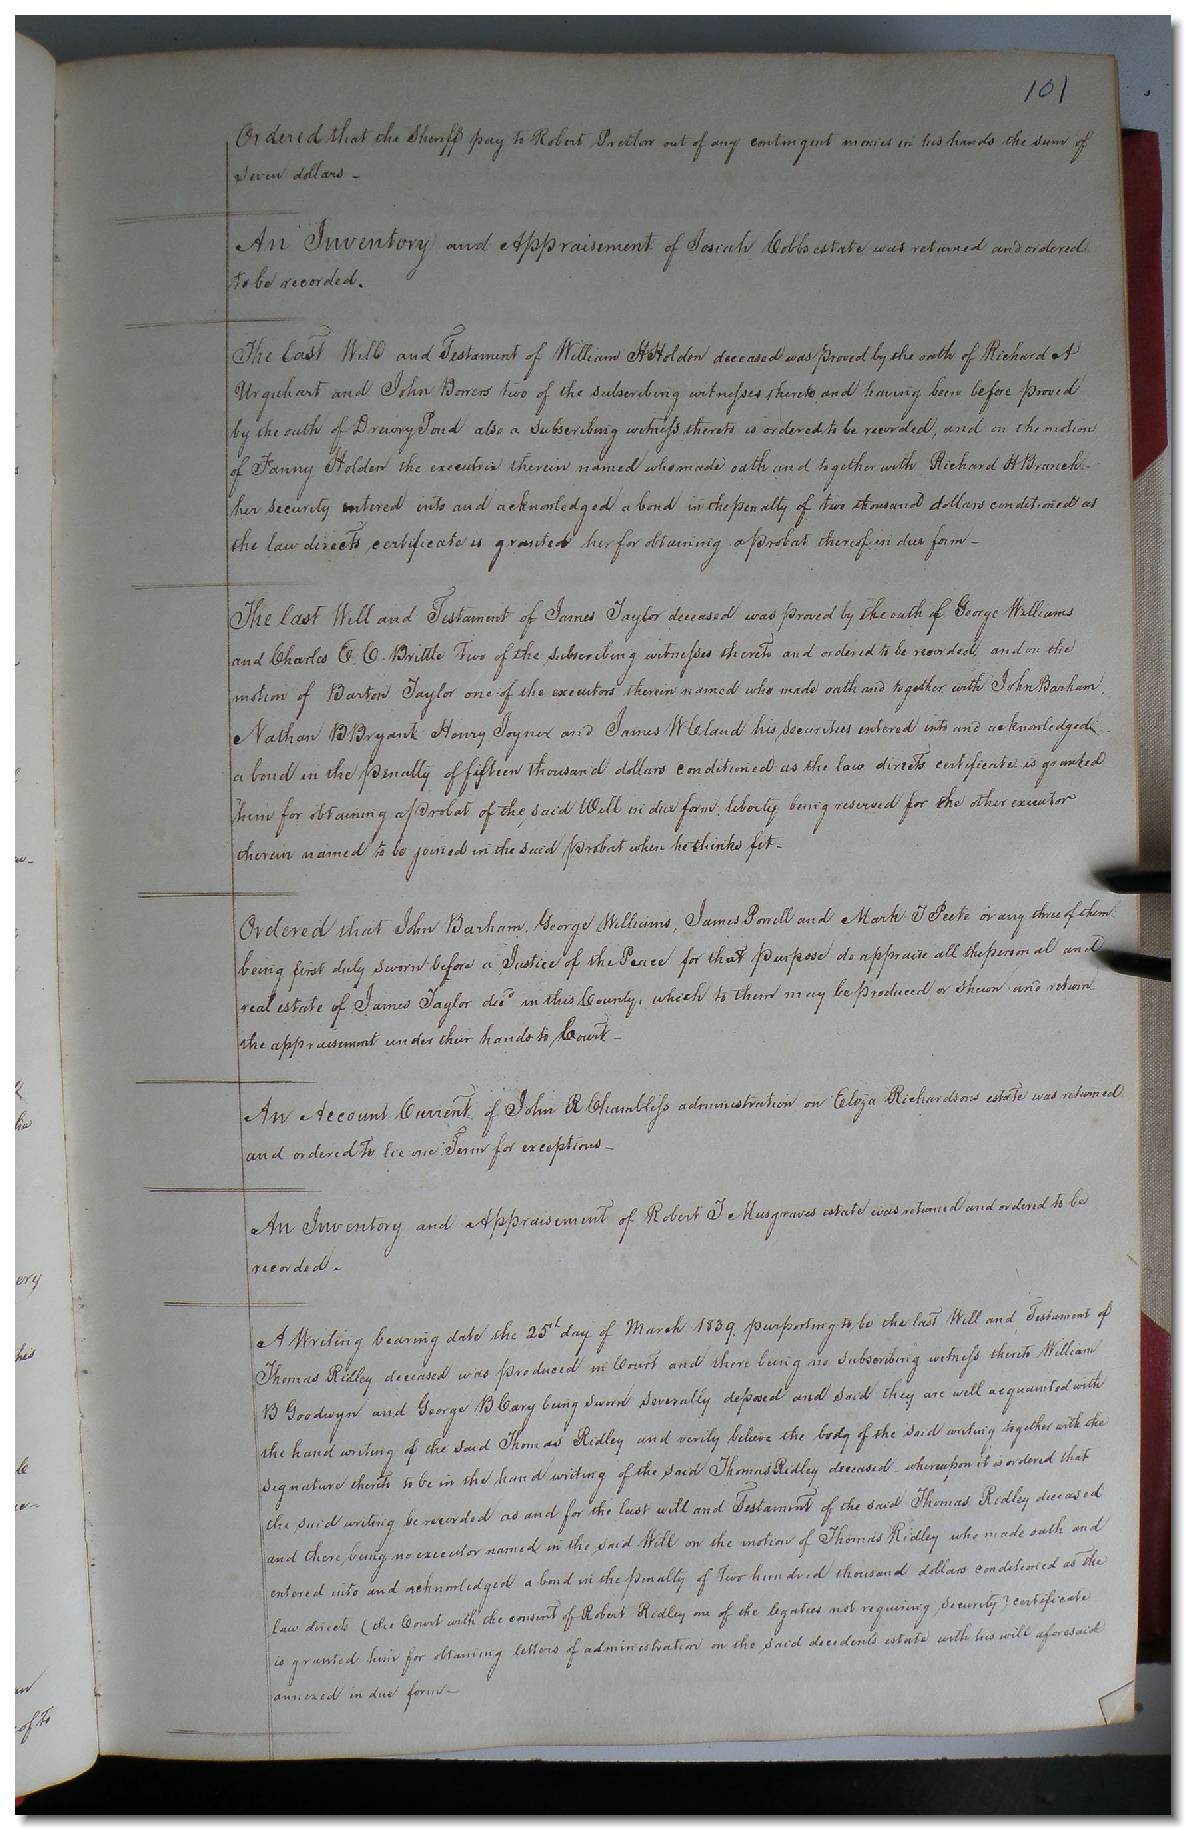 101
Ordered that the Sheriff pay to Robert Pretlow out of any contingent monies in his hands the sum of
seven dollars -
An Inventory and Appraisement of Josiah Cobbs estate was returned and ordered
to be recorded.
The last Will and Testament of William H Holden deceased was proved by the oath of Richard A
Urquhart and John Bowers two of the subscribing witnesses thereto and having been before proved
by the oath of Drewry Pond also a subscribing witness thereto is ordered to be recorded, and on the motion
of Fanny Holden the executrix therein named who made oath and together with Richard H Branch
her security entered into and acknowledged a bond in the penalty of two thousand dollars conditioned as
the law directs certificate is granted her for obtaining a probat thereof in due form -
The last Will and Testament of James Taylor deceased was proved by the oath of George Williams
and Charles E. C. Brittle two of the subscribing witnesses thereto and ordered to be recorded, and on the
motion of Barton Taylor one of the executors therein named who made oath and together with John Barham,
Nathan B Bryant Henry Joyner and James W Claud his securities entered into and acknowledged
a bond in the penalty of fifteen thousand dollars conditioned as the law directs certificate is granted
him for obtaining a probat of the said Will in due form, liberty being reserved for the other executor
therein named to be joined in the said probat when he thinks fit -
Ordered that John Barham, George Williams, James Powell and Mark T Peete or any three of them
being first duly sworn before a Justice of the Peace for that purpose do appraise all the personal and
real estate of James Taylor decd in this County, which to them may be produced or shewn and return
the appraisement under their hands to Court -
An Account Current of John R Chambliss administration on Eloja Richardsons estate was returned
and ordered to lie one Term for exceptions -
An Inventory and Appraisement of Robert T Musgraves estate was returned and ordered to be
recorded.
A Writing bearing date the 25th day of March 1839, purporting to be the last Will and Testament of
Thomas Ridley deceased was produced in Court and there being no subscribing witness thereto William
B Goodwyn and George B Cary being sworn severally deposed and said they are well acquainted with
the hand writing of the said Thomas Ridley and verily believe the body of the said writing together with the
signature thereto to be in the hand writing of the said Thomas Ridley deceased - whereupon it is ordered that
the said writing be recorded as and for the last will and Testament of the said Thomas Ridley deceased
and there being no executor named in the said Will on the motion of Thomas Ridley who made oath and
entered into and acknowledged a bond in the penalty of two hundred thousand dollars conditioned as the
law directs (the Court with the consent of Robert Ridley one of the legatees not requiring security) certificate
is granted him for obtaining letters of administration on the said decedents estate with his will aforesaid
annexed in due form -